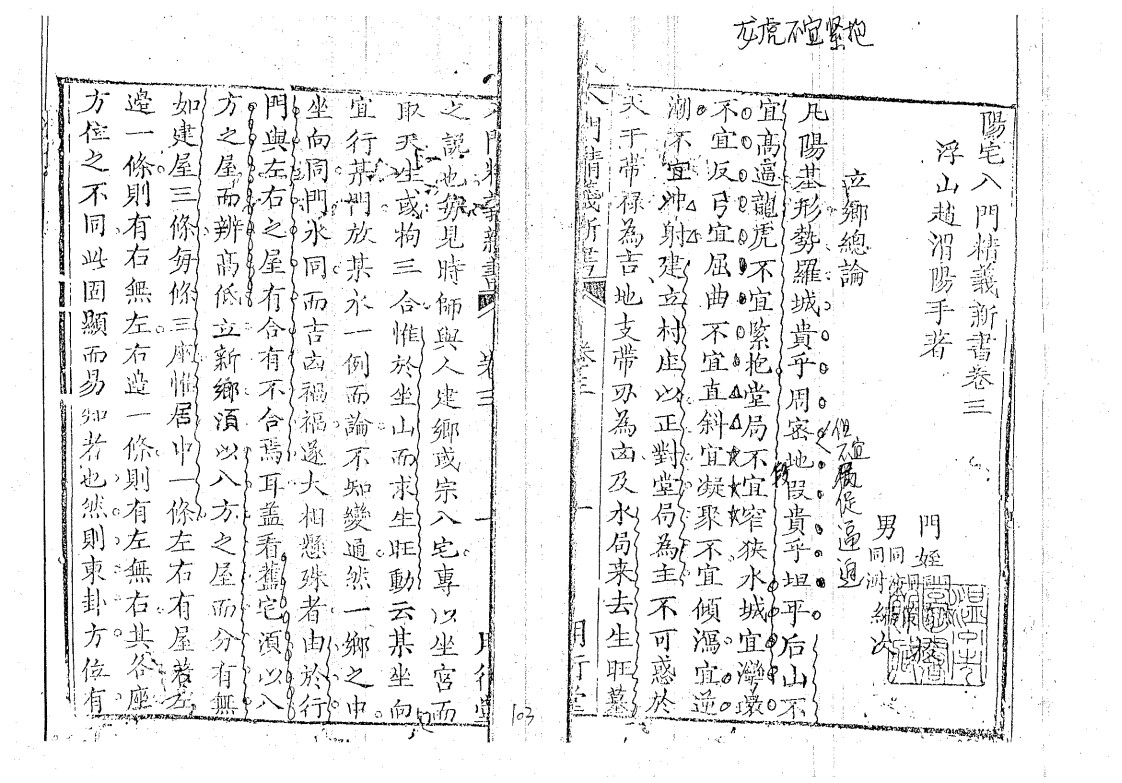 龙虎不宜紧抱
陽宅入門精義新書卷三
浮山趙渭陽手著
門姪
男同
編次
立鄉總論
凡陽基形勢羅城貴乎周密地叚貴乎坦平后山不
但不宜偪促逼迫
宜高逼龍虎不宜緊抱堂局不宜窄狹水城宜灣環
不宜反弓宜屈曲不宜直斜宜凝聚不宜傾瀉宜逆
潮不宜沖射建立村庄以正對堂局為主不可惑於
天干帶祿為吉地支帶刃為凶及水局来去生旺墓
入門精義新書
卷三
一
明行堂
103
之説也毎見時師與人建鄉或宗八宅專以坐宮而
取天生或拘三合惟於坐山而求生旺動云某坐向
宜行某門放某水一例而論不知變通然一鄉之中
坐向同門水同而吉凶禍福遂大相懸殊者由於行
門與左右之屋有合有不合焉耳蓋看舊宅須以八
方之屋而辨高低立新鄉須以八方之屋而分有無
如建屋三條毎條三座惟居中一條左右有屋若左
邉一條則有右無左右邉一條則有左無右其各座
方位之不同此固顯而易知者也然則東卦方位有